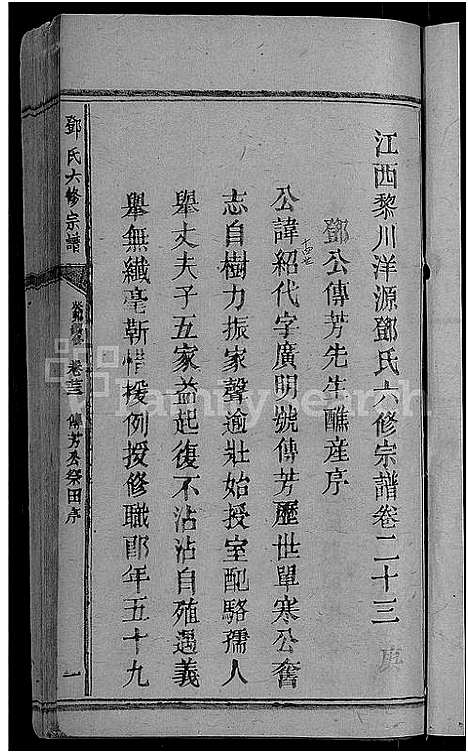 江西黎川洋源鄧氏六修宗譜卷二十三
鄧公傳芳先生醮産序
公諱紹代字廣明號傳芳歷世單寒公奮
志自樹力振家聲逾壯始授室配駱孺人
舉丈夫子五家益起復不沾沾自殖遇義
舉無纖毫靳惜援例授修職郎年五十九
鄧氏六修宗譜
卷廿三
傳芳公祭田序
一
FamilySearch